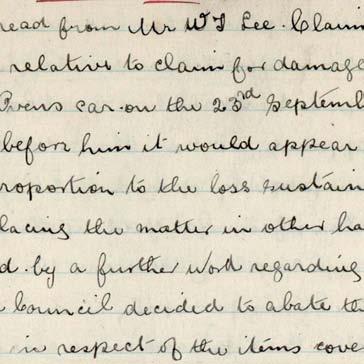 read from Mr W J Lee. Claim
relative to claim for damage
car. on the 23rd Septemb
before him it would appear
roportion to the loss sustain
lacing the matter in other ha
d. by a further word regarding
Council decided to abate th
in respect of the items cove